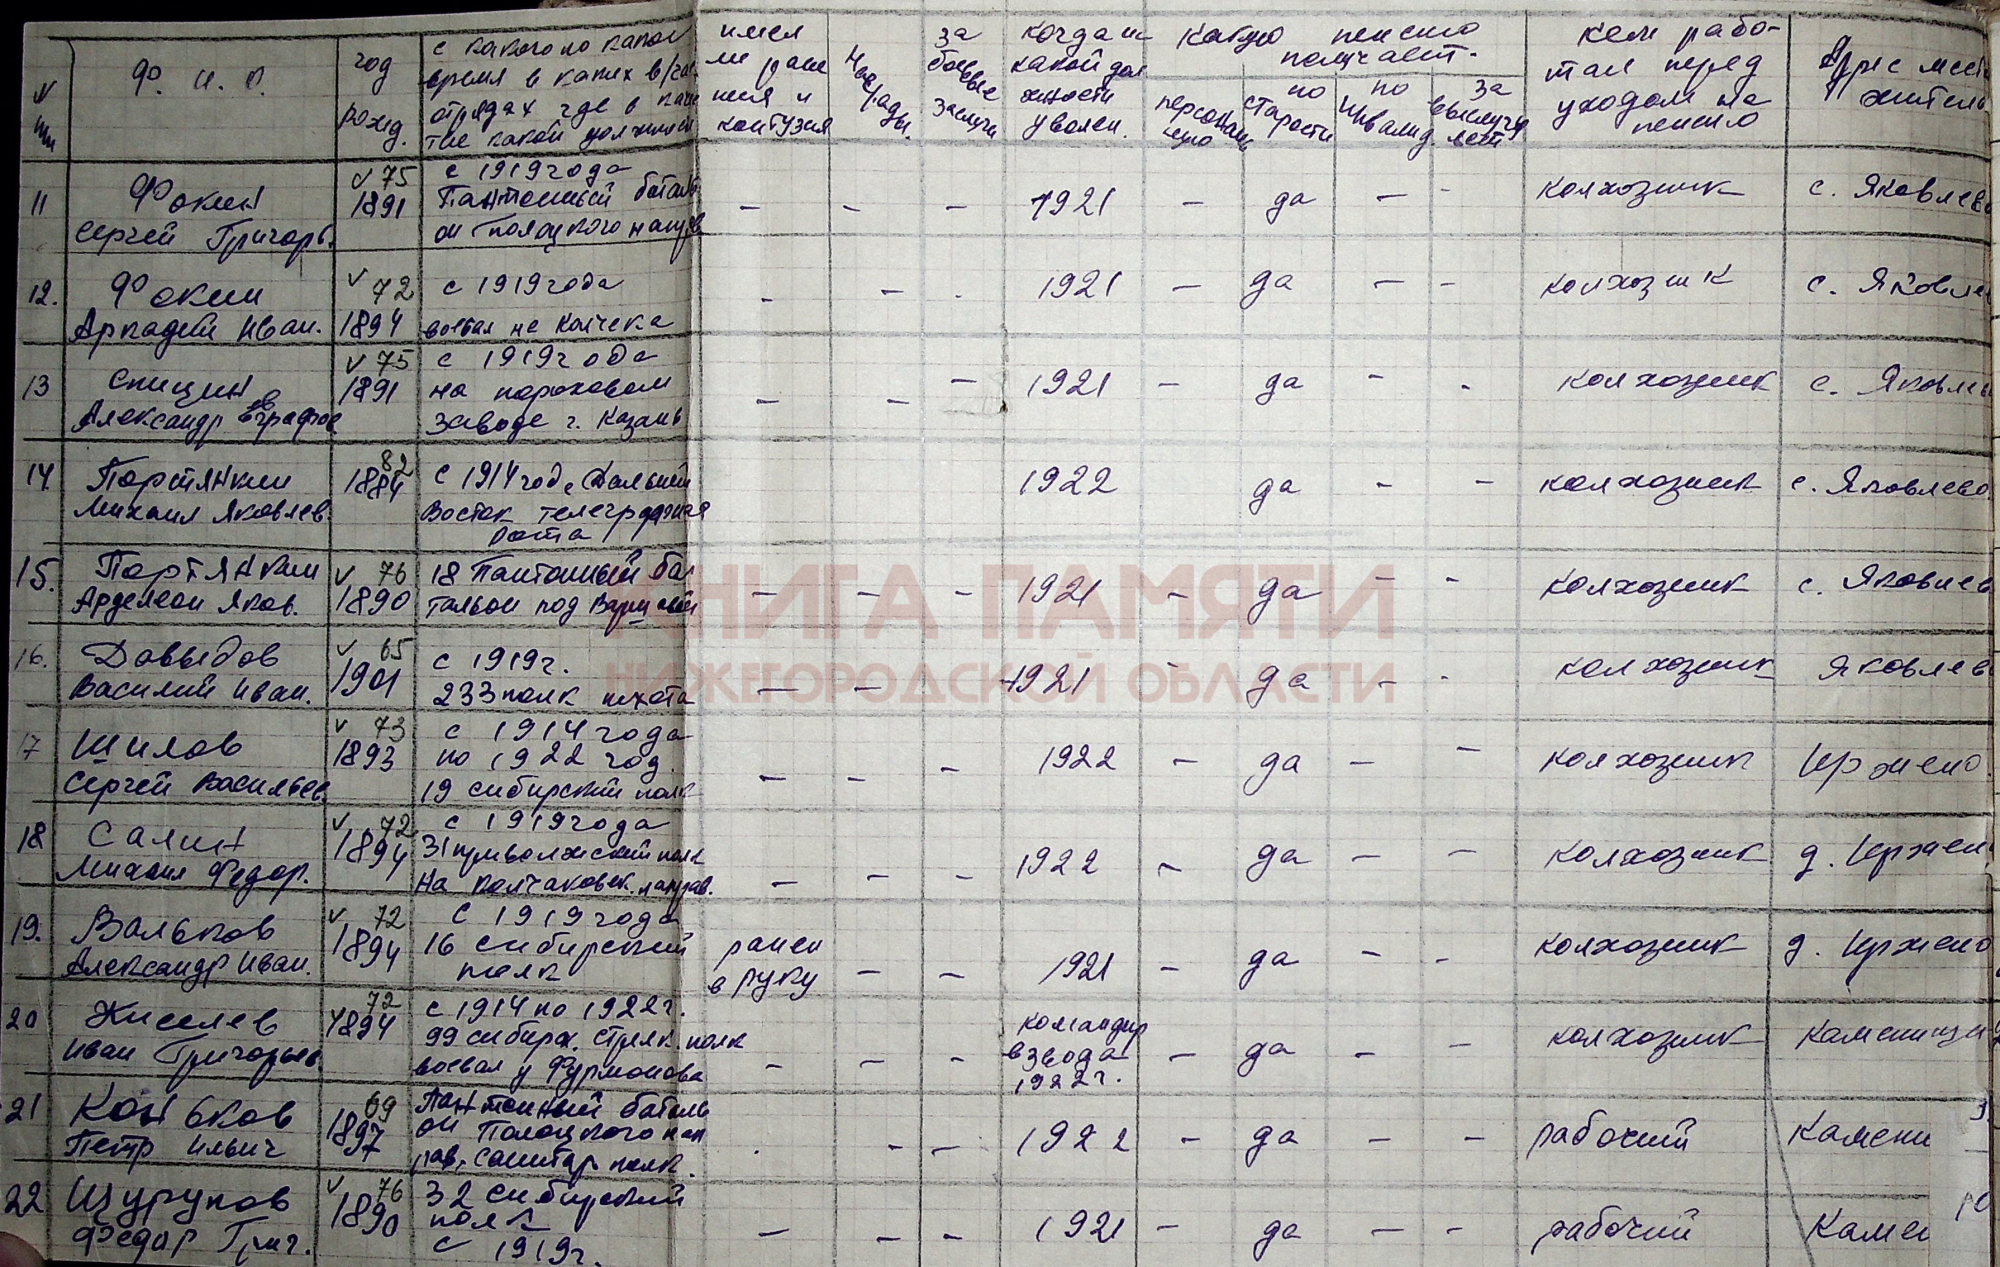 № пп
Ф. И. О.
год рожд.
с какого по какое
время в каких в/час
отрядах где в
какой должности
имел
ли ране
ния и
контузия
Награды.
за боевые заслуги
когда и с
какой дол
жности
уволен.
какую пенсию
получает.
персональную
по старости
по инвалид.
за выслугу лет
кем рабо-
тал перед
уходом на
пенсию
Адрес место
житель
11 Фокин
Сергей Григорь.
75
1891
с 1919 года
Пантонный баталь
он Полоцкого направ
– – – 1921 – да – - колхозник с. Яковлево
12. Фокин
Аркадий Иван.
72
1894
с 1919 года
воевал на Колчака
- – . 1921 – да – – колхозник с. Яковле
13 Спицин
Александр Евграфов.
75
1891
с 1919 года
на пороховом
заводе г. Казань
– – – 1921 – да - - колхозник с. Яковлев
14. Портянкин
Михаил Яковлев.
82
1884
с 1914 год. Дальний
Восток телеграфная
рота
1922 да - - колхозник с. Яковлево.
15. Портянкин
Арделеон Яков.
76
1890
18 Пантонный ба
тальон под Варшавой
– – – 1921 – да – - колхозник с. Яковлев
16. Давыдов
Василий Иван.
65
1901
с 1919 г.
233 полк пехота
– – 1921 - да – - колхозник Яковлев
17 Шилов
Сергей Васильев.
73
1893
с 1914 года
по 1922 год.
19 сибирский полк
– – – 1922 – да – – колхозник Иржено.
18 Салин
Михаил Федор.
72
1894
с 1919 года
31 приволжский полк
на колчаковск. направ.
– – – 1922 – да – – колхозник д. Иржен
19. Вальков
Александр Иван.
72
1894
с 1919 года
16 сибирский
полк
ранен
в руку
– – 1921 – да – - колхозник д. Иржено
20 Киселев
Иван Григорьев.
72
1894
с 1914 по 1922 г.
99 сибирск. стрелк. полк
воевал у Фурманова
– – – командир
взвода
1922 г.
– да – – колхозник Каменищи
21 Коньков
Петр Ильич
69
1897
Пантонный баталь
он Полоцкого нап
рав, санитар полк.
. - – 1922 – да – – рабочий Камени
22 Щурупов
Федор Григ.
76
1890
32 сибирский
полк
с 1919 г.
– – – 1921 – да – – рабочий Камен
КНИГА ПАМЯТИ
НИЖЕГОРОДСКОЙ ОБЛАСТИ